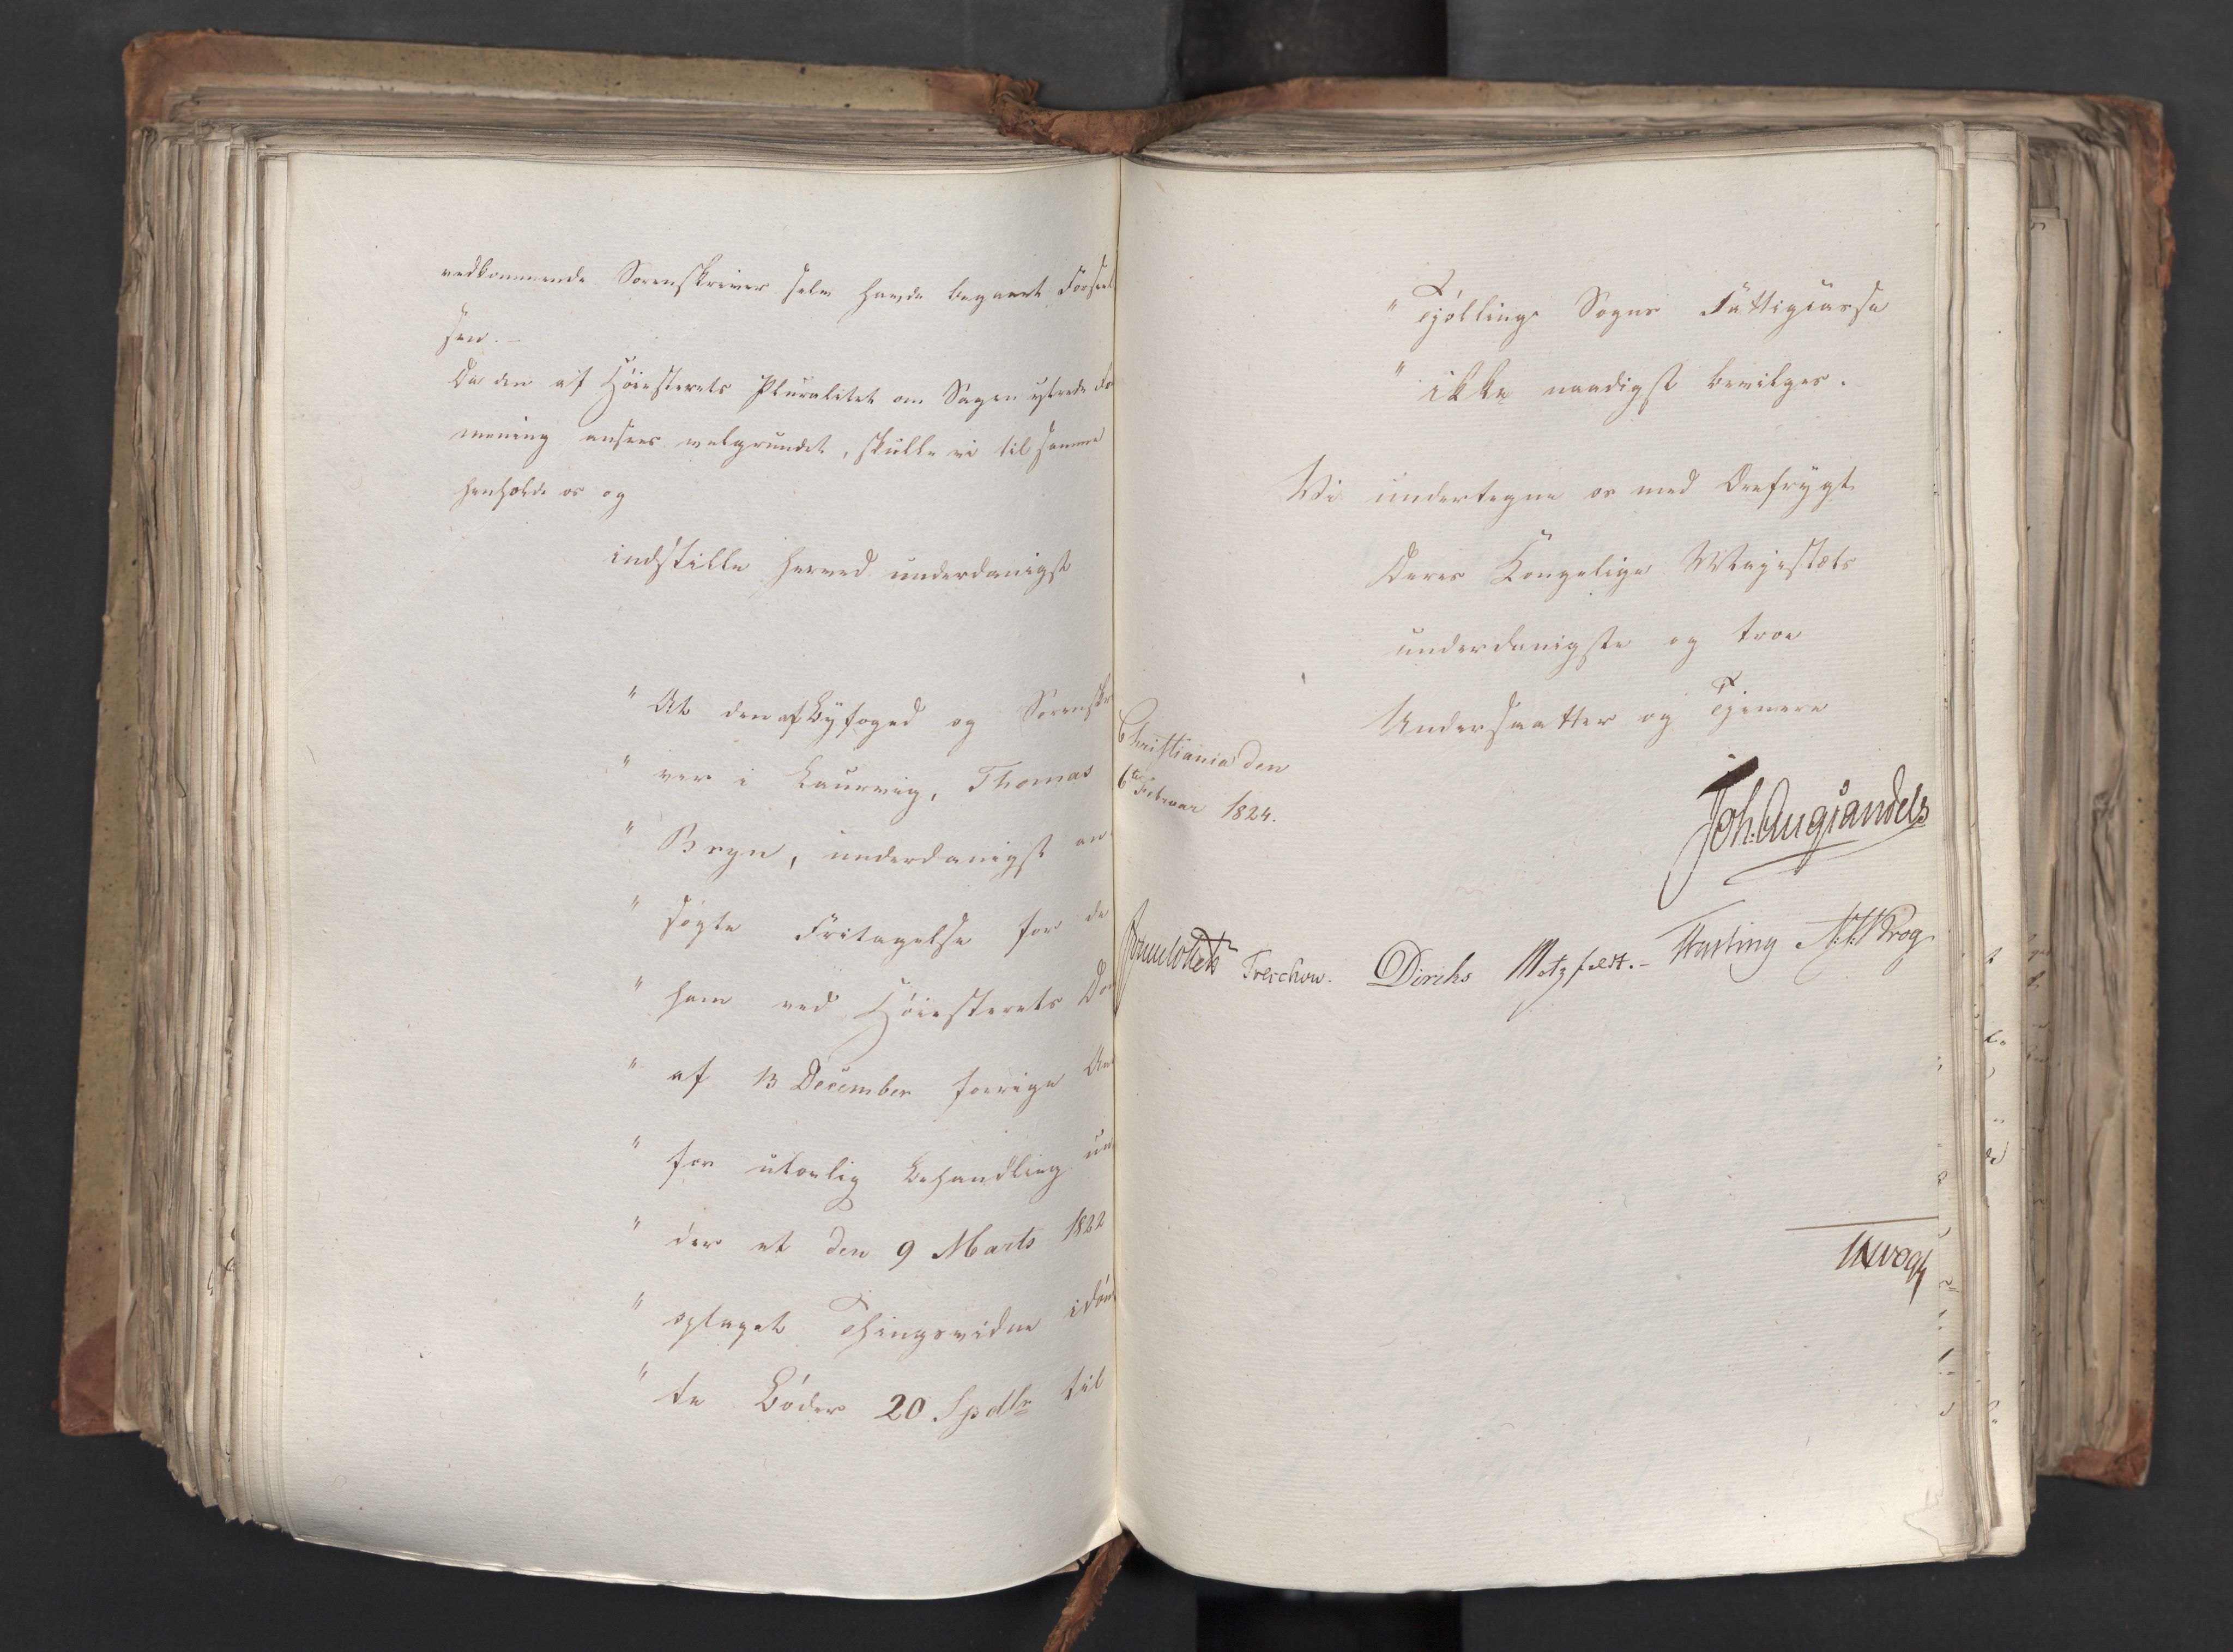 vedkommende Sorenskriver selv havde begaaet Forseel
sen. -
Da den af Høiesterets Pluralitet om Sagen yttrede For
mening ansees velgrundet, skulle vi til samme
henholde os og
indstille herved underdanigst
" At den af Byfoged og Sorenskri
" ver i Laurvig, Thomas
" Bryn, underdanigst an
" søgte Fritagelse for de
" ham ved Høiesterets Dom
" af 13 December forrige Aar
" for ulovlig Behandling un
" der et den 9 Marts 1822
" optaget Thingsvidne idøm
" te Bøder 20 Spdlr til
" Tjøllings Sogns Fattigcasse
" ikke naadigst bevilges.
Vi undertegne os med Ærefrygt
Deres Kongelige Majestæts
underdanigste og troe
Undersaatter og Tjenere
Christiania den
6te Februar 1824.
Joh. Aug Sandels
Sommerhielm Treschow. Diriks Motzfeldt. - Fasting N: Krog
NVogt